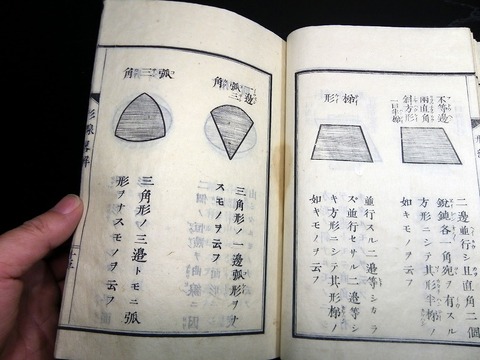 不等邊
兩直角
斜方形
一曰半梯
二邊並行シ且直角二個
銳鈍各一角宛ヲ有スル
方形ニシテ其形半梯ノ
如キモノヲ云フ
梯形
並行スル二邊等シカラ
ス並行セサル二邊等シ
キ方形ニシテ其形梯ノ
如キモノヲ云フ
三角形ノ一邊弧形ヲナ
スモノヲ云フ
弧三角
三角形ノ三邊トモニ弧
形ヲナスモノヲ云フ